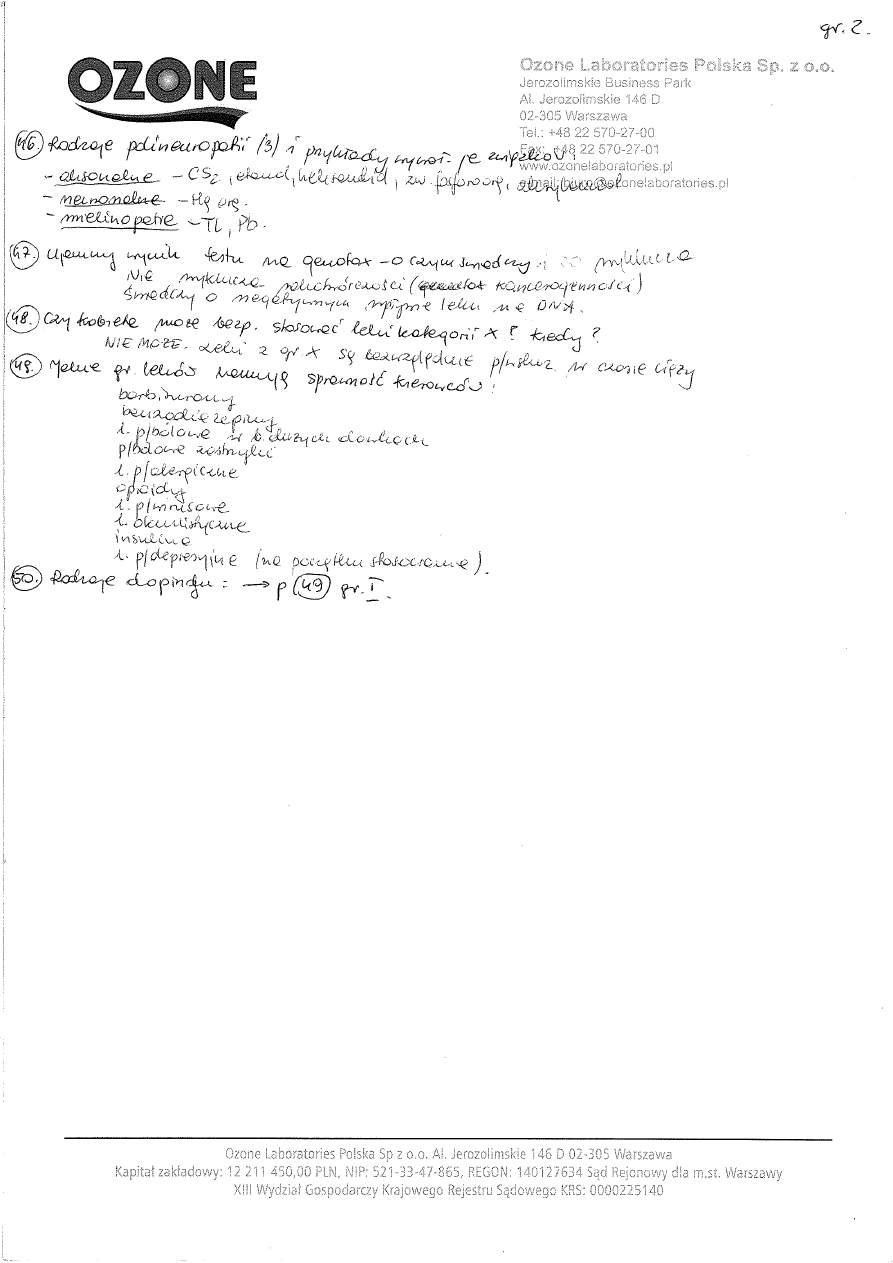 gr. 2.
OZONE
Ozone Laboratories Polska Sp. z o.o.
Jerozolimskie Business Park
Al. Jerozolimskie 146 D
02-305 Warszawa
Tel.: +48 22 570-27-00
Fax: +48 22 570-27-01
www.ozonelaboratories.pl
e-mail: biuro@ozonelaboratories.pl
46. Rodzaje polineuropatii (3) i przykłady wywoł. je związków:
- aksonalne - CS2, etanol, heksandiol, zw. fosforoorg.,
- neuronalne - Hg org.
- mielinopatie - TL, Pb.
47. Ujemny wynik testu na genotox - o czym świadczy i co wyklucza
Nie wyklucza (kancerogenności)
Świadczy o negatywnym wpływie leku na DNA.
48. Czy kobieta może bezp. stosować leki kategorii X? Kiedy?
NIE MOŻE. Leki z gr X są bezwzględnie p/wskaz. w czasie ciąży
49. Jakie gr. leków hamują sprawność kierowców:
barbiturany
benzodiazepiny
l. p/bólowe w b. dużych dawkach
p/bólowe zastrzyki
l. p/alergiczne
opioidy
l.
l. okulistyczne
insulina
l. p/depresyjne (na początku stosowania).
50. Rodzaje dopingu: → p 49 gr. I.
Ozone Laboratories Polska Sp z o.o. Al. Jerozolimskie 146 D 02-305 Warszawa
Kapitał zakładowy: 12 211 450,00 PLN, NIP: 521-33-47-865, REGON: 140127634 Sąd Rejonowy dla m.st. Warszawy
XIII Wydział Gospodarczy Krajowego Rejestru Sądowego KRS: 0000225140